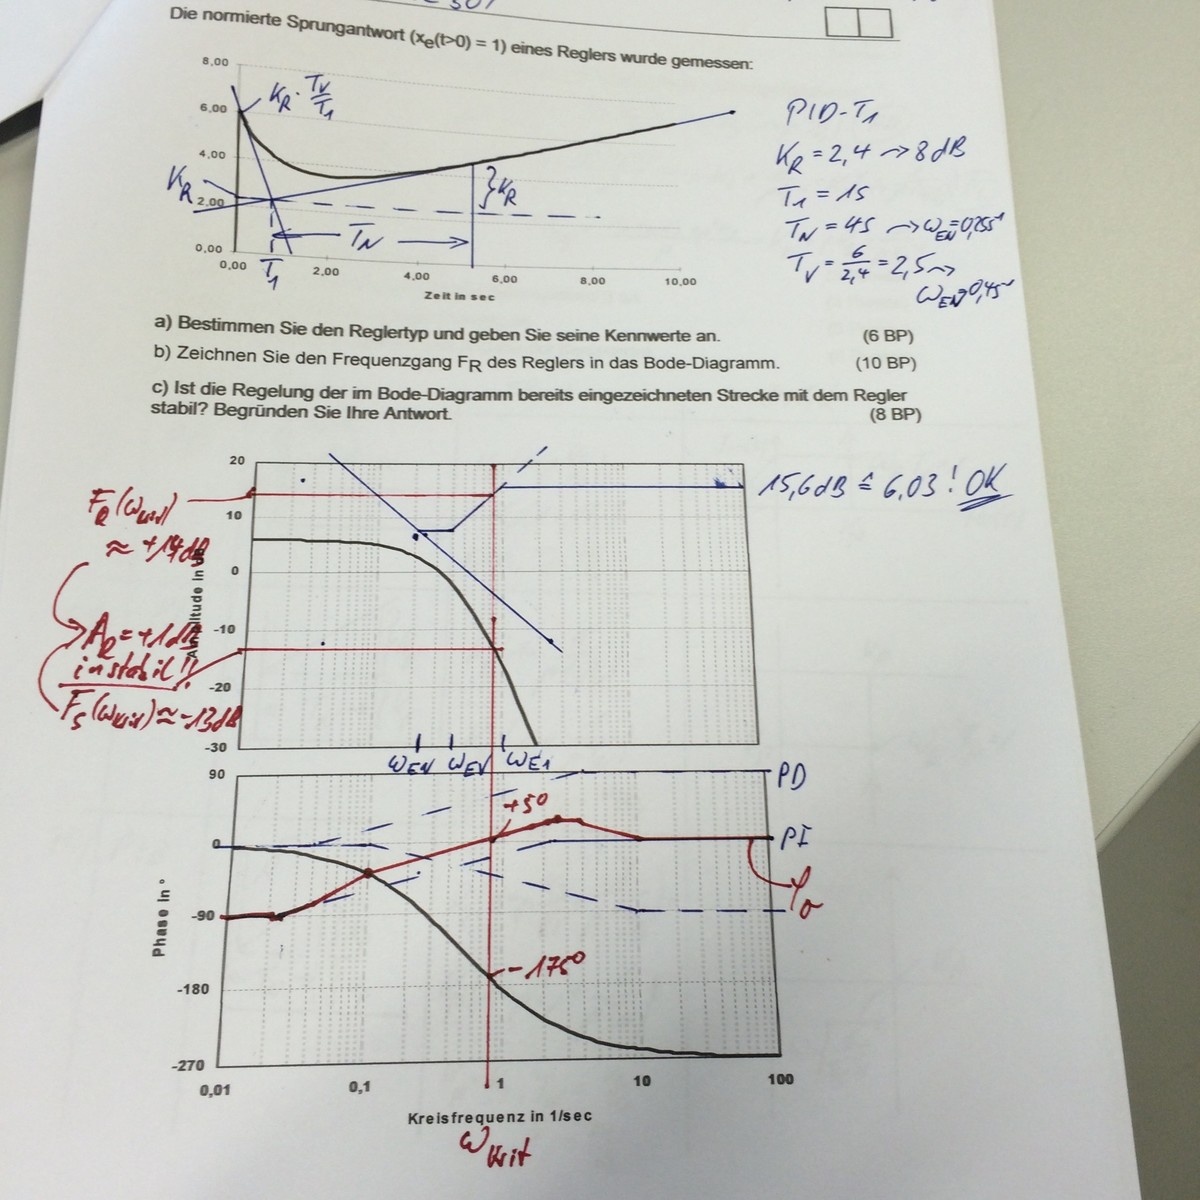 Die normierte Sprungantwort (xe(t>0) = 1) eines Reglers wurde gemessen:
8,00
6,00
4,00
2,00
0,00
0,00
2,00
4,00
6,00
8,00
10,00
Zeit in sec
KR · TV/T1
KR
}KR
TN
T1
PID-T1
KR = 2,4 → 8 dB
T1 = 1s
TN = 4s → ωEN = 0,25s⁻¹
TV = 6/2,4 = 2,5 →
a) Bestimmen Sie den Reglertyp und geben Sie seine Kennwerte an. (6 BP)
b) Zeichnen Sie den Frequenzgang FR des Reglers in das Bode-Diagramm. (10 BP)
c) Ist die Regelung der im Bode-Diagramm bereits eingezeichneten Strecke mit dem Regler
stabil? Begründen Sie Ihre Antwort. (8 BP)
20
10
0
-10
-20
-30
Amplitude in dB
15,6 dB ≙ 6,03 ! OK
FR(ωkrit)
≈ +14 dB
AR = +1 dB
instabil!!
FS(ωkrit) ≈ -13 dB
ωEN ωEV ωE1
90
0
-90
-180
-270
Phase in °
PD
+5°
PI
-175°
0,01
0,1
1
10
100
Kreisfrequenz in 1/sec
ωkrit